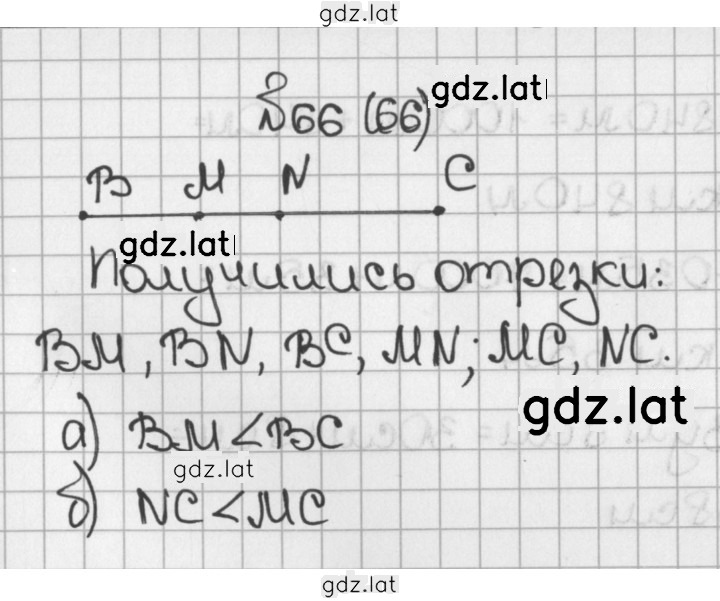 gdz.lat
№66 (66) gdz.lat
B M N C
gdz.lat
Получились отрезки:
BM, BN, BC, MN; MC, NC.
gdz.lat
а) BM < BC
gdz.lat
б) NC < MC
gdz.lat